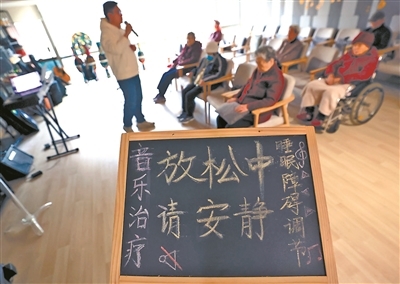 音乐治疗
放松中
请安静
睡眠障碍调节